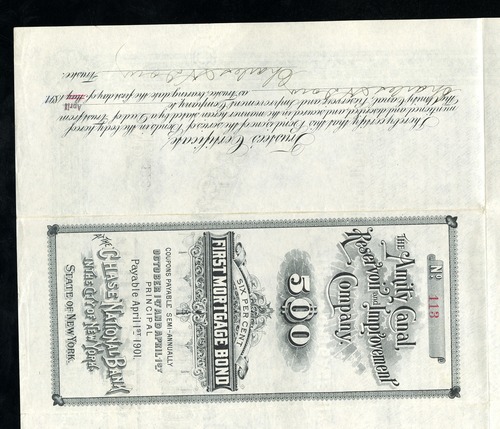 Trustee's Certificate
I hereby certify that this Bond is one of the series of Bonds in the body hereof
mentioned and described and secured in manner herein stated by a Deed of Trust from
The Amity Canal, Reservoir and Improvement Company to
Charles
as Trustee bearing date the first day of May April 1891
Charles Trustee.
No. 113
THE Amity Canal,
Reservoir AND Improvement
Company.
500
SIX PER CENT
FIRST MORTGAGE BOND
COUPONS PAYABLE SEMI-ANNUALLY
OCTOBER 1ST AND APRIL 1ST
PRINCIPAL
Payable April 1st 1901.
AT THE CHASE NATIONAL BANK
IN THE CITY OF NEW YORK
STATE OF NEW YORK.